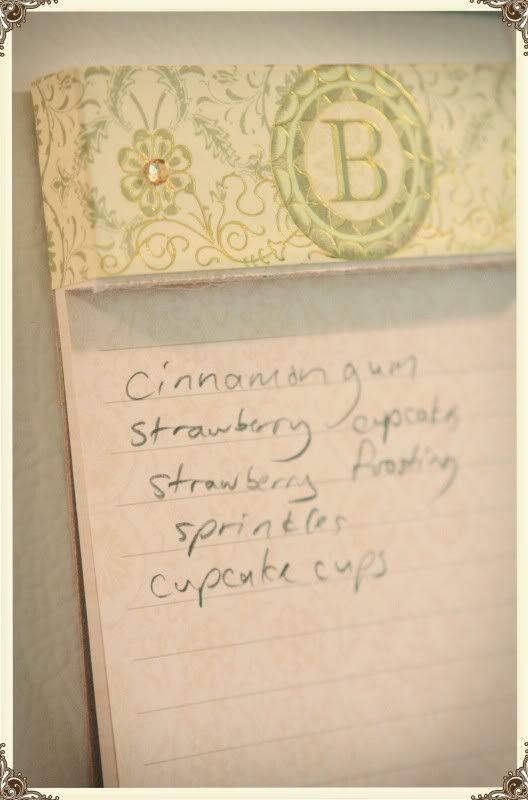 B
Cinnamon gum
strawberry cupcake
strawberry frosting
sprinkles
cupcake cups